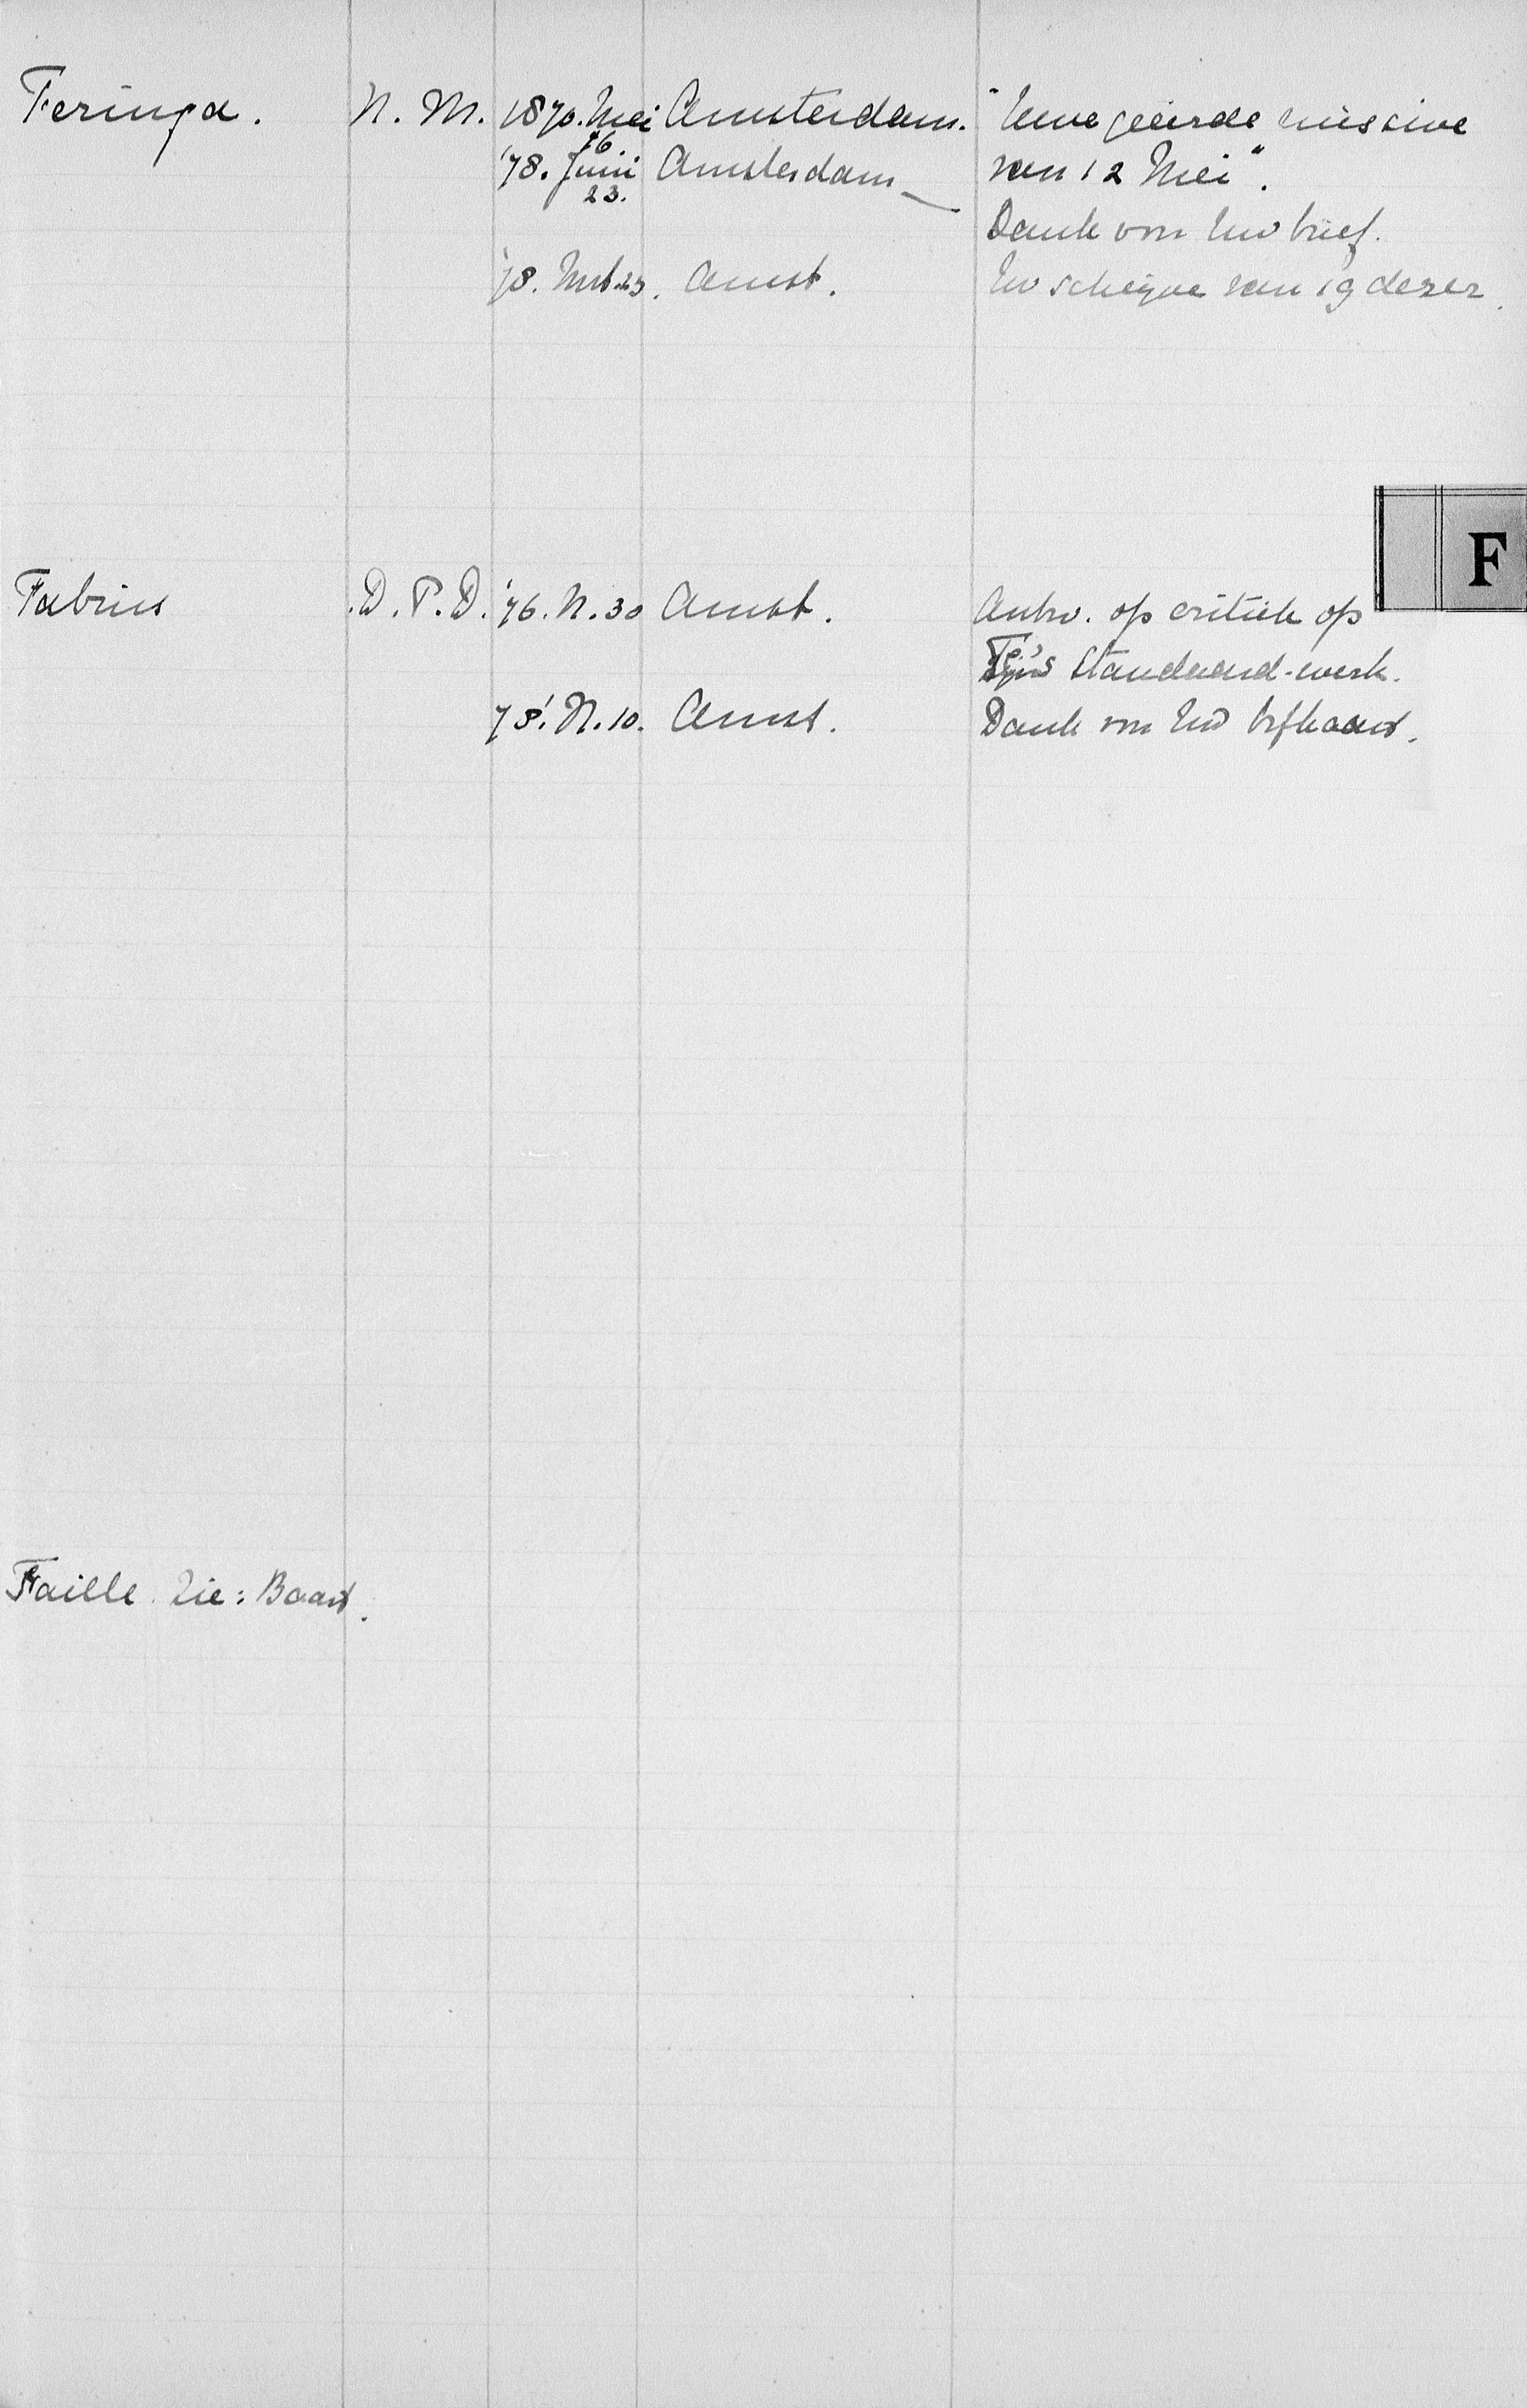 Feringa. N. M. 1870. Mei 16. Amsterdam. "Uwe geëerde missive
'78. Juni 23. Amsterdam van 12 Mei".
Dank voor Uw brief.
'78. Mrt. 23. Amst. Uw schrijven van 19 dezer.
F
Fabius D. P. D. '76. N. 30 Amst. Antw. op critiek op
F's Standaard-werk.
78'. N. 10. Amst. Dank voor Uw brfkaart.
Faille. Zie: Baart.